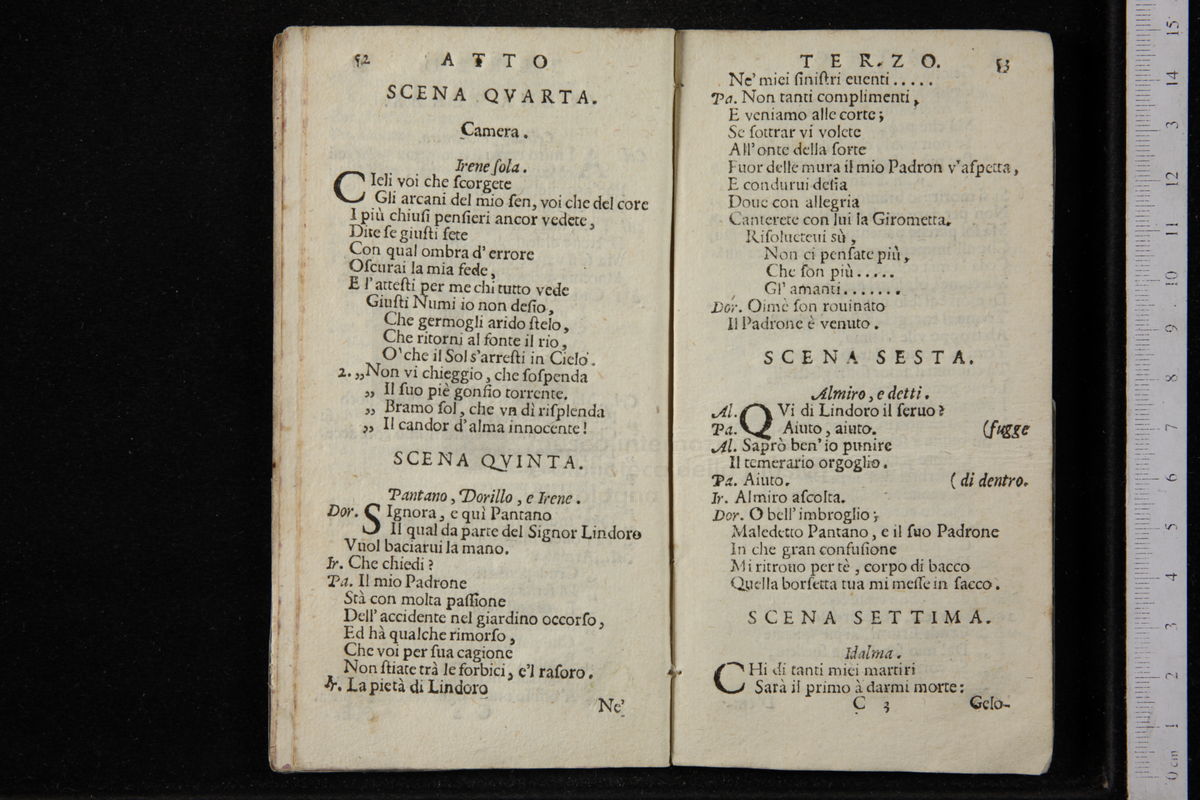 52 ATTO
SCENA QVARTA.
Camera.
Irene ſola.
CIeli voi che ſcorgete
Gli arcani del mio ſen, voi che del core
I più chiuſi penſieri ancor vedete,
Dite ſe giuſti ſete
Con qual ombra d'errore
Oſcurai la mia fede,
E l'atteſti per me chi tutto vede
Giuſti Numi io non deſio,
Che germogli arido ſtelo,
Che ritorni al fonte il rio,
O' che il Sol s'arreſti in Cielo.
2. „Non vi chieggio, che ſoſpenda
„ Il ſuo piè gonfio torrente.
„ Bramo ſol, che vn dì riſplenda
„ Il candor d'alma innocente!
SCENA QVINTA.
Pantano, Dorillo, e Irene.
Dor. SIgnora, e quì Pantano
Il qual da parte del Signor Lindoro
Vuol baciarui la mano.
Ir. Che chiedi?
Pa. Il mio Padrone
Stà con molta paſſione
Dell'accidente nel giardino occorſo,
Ed hà qualche rimorſo,
Che voi per ſua cagione
Non ſtiate trà le forbici, e'l raſoro.
Ir. La pietà di Lindoro
Ne'
TERZO. 53
Ne' miei ſiniſtri euenti .....
Pa. Non tanti complimenti,
E veniamo alle corte;
Se ſottrar vi volete
All'onte della ſorte
Fuor delle mura il mio Padron v'aſpetta,
E condurui deſia
Doue con allegria
Canterete con lui la Girometta.
Riſolueteui sù,
Non ci penſate più,
Che ſon più .....
Gl'amanti.......
Dor. Oimè ſon rouinato
Il Padrone è venuto.
SCENA SESTA.
Almiro, e detti.
Al. QVi di Lindoro il ſeruo?
Pa. Aiuto, aiuto. (fugge
Al. Saprò ben'io punire
Il temerario orgoglio.
Pa. Aiuto. (di dentro.
Ir. Almiro aſcolta.
Dor. O bell'imbroglio;
Maledetto Pantano, e il ſuo Padrone
In che gran confuſione
Mi ritrouo per tè, corpo di bacco
Quella borſetta tua mi meſſe in ſacco.
SCENA SETTIMA.
Idalma.
CHi di tanti miei martiri
Sarà il primo à darmi morte:
C 3 Gelo-